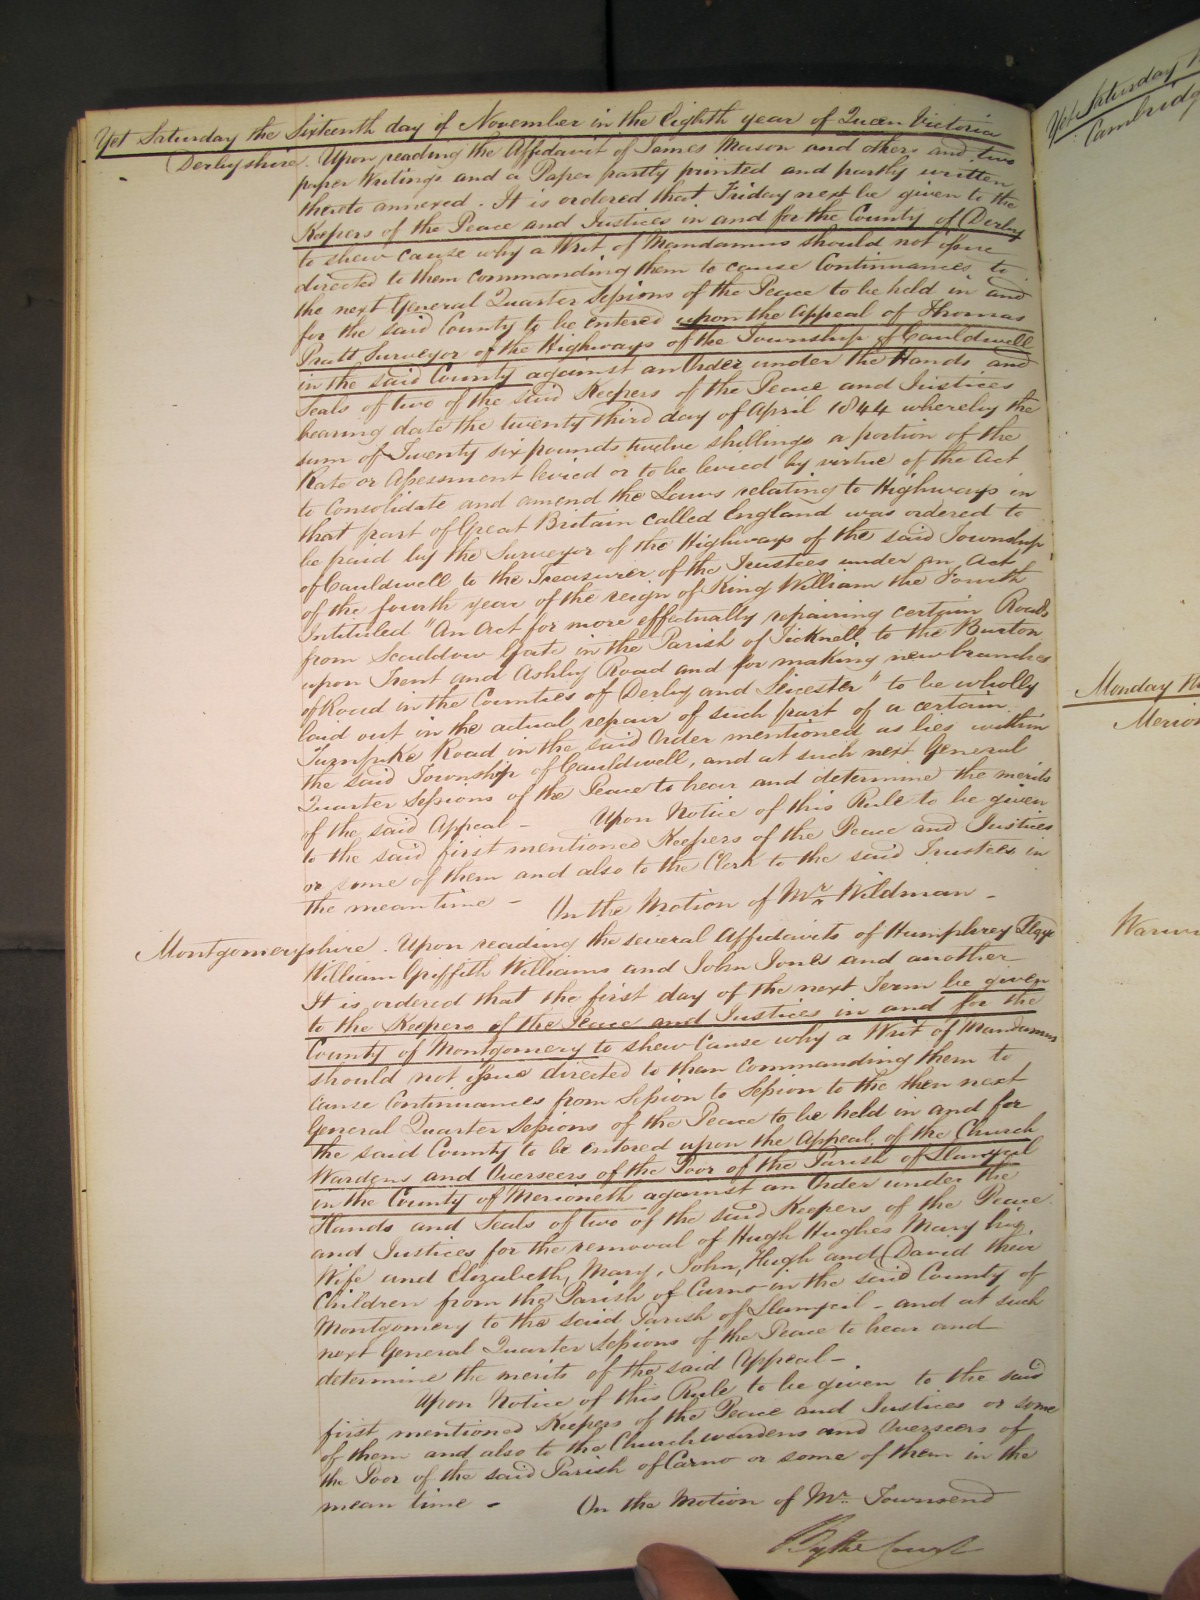 Yet Saturday the Sixteenth day of November in the Eighth year of Queen Victoria
Derbyshire. Upon reading the Affidavit of James Mason and others and two
paper Writings and a Paper partly printed and partly written
thereto annexed. It is ordered that Friday next be given to the
Keepers of the Peace and Justices in and for the County of Derby
to shew cause why a Writ of Mandamus should not issue
directed to them commanding them to cause Continuances to
the next General Quarter Sessions of the Peace to be held in and
for the said County to be entered upon the Appeal of Thomas
Pratt Surveyor of the Highways of the Township of Cauldwell
in the said County against an Order under the Hands and
Seals of two of the said Keepers of the Peace and Justices
bearing date the twenty third day of April 1844 whereby the
sum of Twenty six pounds twelve shillings a portion of the
Rate or Assessment levied or to be levied by virtue of the Act
to Consolidate and amend the Laws relating to Highways in
that part of Great Britain called England was ordered to
be paid by the Surveyor of the Highways of the said Township
of Cauldwell to the Treasurer of the Trustees under an Act
of the fourth year of the reign of King William the Fourth
Intituled "An Act for more effectually repairing certain Roads
from Scaddow Gate in the Parish of Ticknell to the Burton
upon Trent and Ashby Road and for making new branches
of Road in the Counties of Derby and Leicester" to be wholly
laid out in the actual repair of such part of a certain
Turnpike Road in the said Order mentioned as lies within
the said Township of Cauldwell, and at such next General
Quarter Sessions of the Peace to hear and determine the merits
of the said Appeal - Upon Notice of this Rule to be given
to the said first mentioned Keepers of the Peace and Justices
or some of them and also to the Clerk to the said Trustees in
the mean time - On the Motion of Mr Wildman -
Montgomeryshire. Upon reading the several Affidavits of Humphrey
William Griffith Williams and John Jones and another
It is ordered that the first day of the next Term be given
to the Keepers of the Peace and Justices in and for the
County of Montgomery to shew Cause why a Writ of Mandamus
should not issue directed to them Commanding them to
cause Continuances from Session to Session to the then next
General Quarter Sessions of the Peace to be held in and for
the said County to be entered upon the Appeal of the Church
Wardens and Overseers of the Poor of the Parish of Llangeil
in the County of Merioneth against an Order under the
Hands and Seals of two of the said Keepers of the Peace
and Justices for the removal of Hugh Hughes Mary his
Wife and Elizabeth, Mary, John, Hugh and David their
Children from the Parish of Carno in the said County of
Montgomery to the said Parish of Llangeil - and at such
next General Quarter Sessions of the Peace to hear and
determine the merits of the said Appeal -
Upon Notice of this Rule to be given to the said
first mentioned Keepers of the Peace and Justices or some
of them and also to the Churchwardens and Overseers of
the Poor of the said Parish of Carno or some of them in the
mean time - On the Motion of Mr Townsend
By the Court
Yet Saturday
Monday the